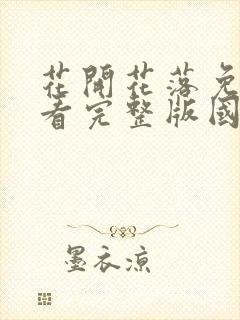 花開花落免
看完整版國
墨衣涼